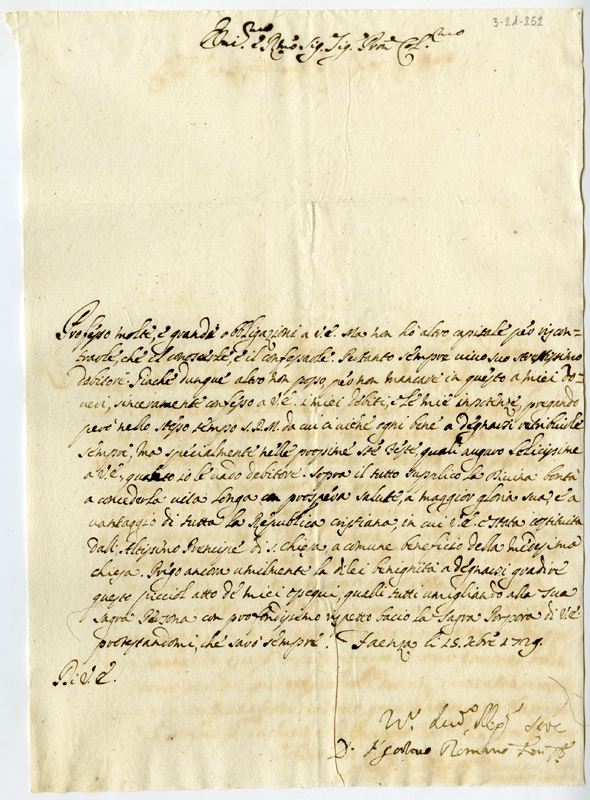 3-21-252
Em.mo e R.mo Sig. Sig. Pron Col.mo
Professo molte, e grande obbligazioni a V.E. Ma non hò altro capitale per riscon-
trarle, che il conoscerle e il confessarle. Pertanto sempre vivo suo strettissimo
debitore. Giache dunque altro non posso, per non mancare in questo a miei do-
veri, sinceramente confesso a V.E. i miei debiti, e le mie
però nello stesso tempo S.D.M. da cui ci viene ogni bene a degnarsi retribuirle
sempre, ma specialmente nelle prossime Ste Feste, quali auguro felicissime
a V.E., quanto io le vado debitore. Sopra il tutto supplico la Divina bontà
a concederla vita longa con prospera salute, a maggior gloria sua, e a
vantaggio di tutta la Republica cristiana, in cui V.E. è stata costituita
dall'Altissimo Principe di S. Chiesa, a comune beneficio della medesima
chiesa. Prego ancora umilmente la di lei benignità a degnarsi gradire
questo picciol atto de miei ossequi, quelli tutti umigliando alla sua
Sagra Persona con profondissimo rispetto bacio la Sagra Porpora di V.E
protestandomi, che sarò sempre. Faenza li 15. Xbre 1729.
Di V.E.